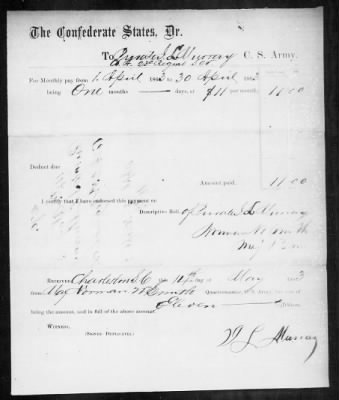 The Confederate States, Dr.
To Private L Murray C. S. Army.
For Monthly pay from 1 April 1863 to 30 April 1863
being One months — days, at $11 per month, 11 00
Deduct due
Amount paid. 11 00
I certify that I have endorsed this payment on
Descriptive Roll, of Private L Murray
Norman W Smith
Maj
Received Charleston S C 12th day of May 1863
from Maj Norman W Smith Quartermaster, C. S. Army,
Eleven Dollars,
being the amount, and in full of the above account.
Witness,
(SIGNED DUPLICATES.)
L Murray